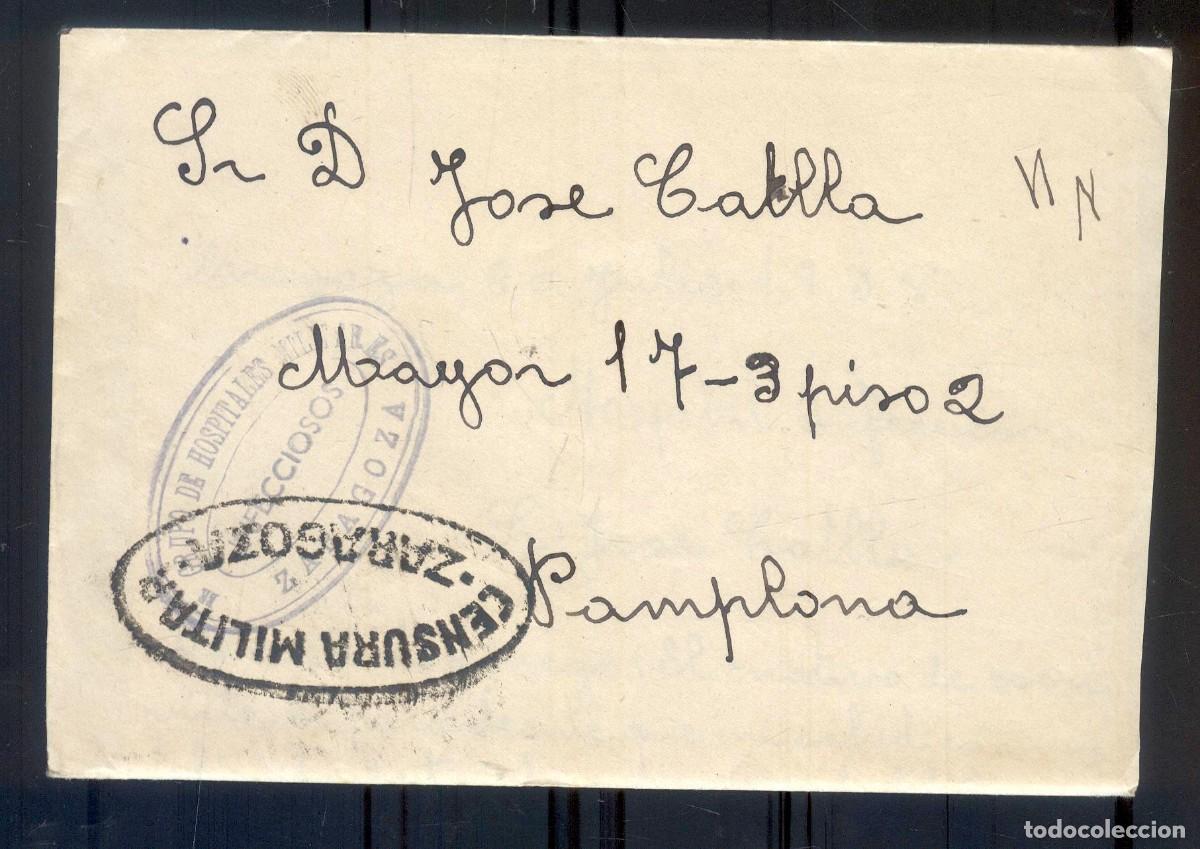 Sr D Jose Catlla
Mayor 17-3 piso 2
Pamplona
GRUPO DE HOSPITALES MILITARES
INFECCIOSOS
ZARAGOZA
CENSURA MILITAR
·ZARAGOZA·
todocoleccion